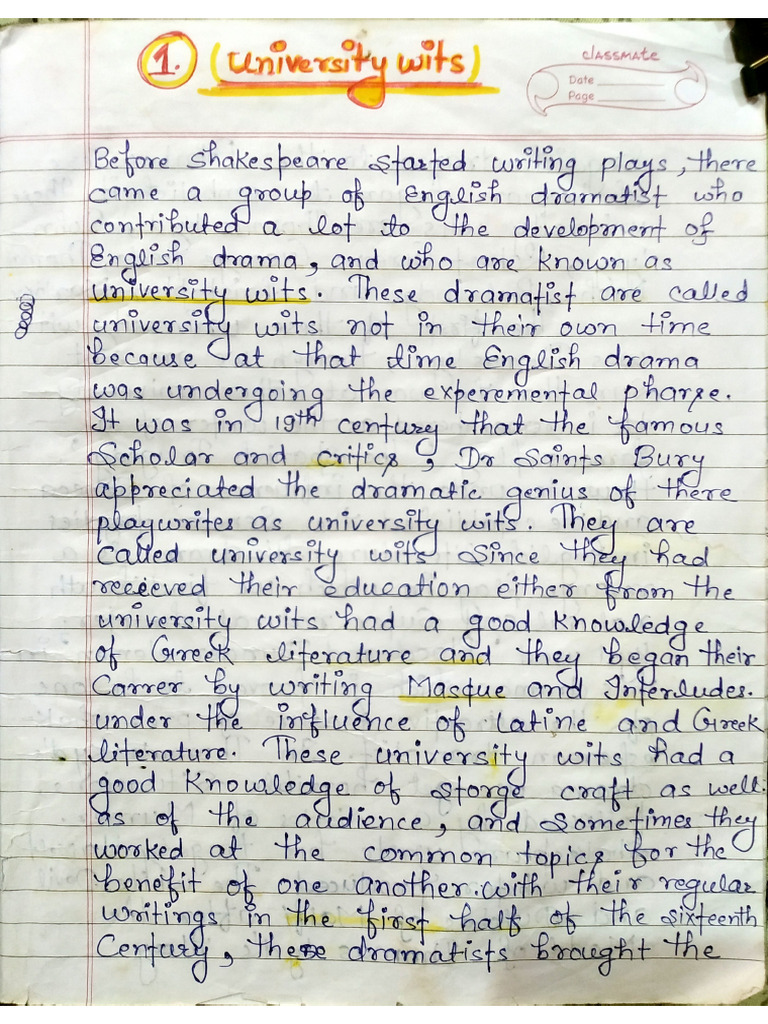 1. (University wits)
classmate
Date
Page
Before Shakespeare started writing plays, there
came a group of English dramatist who
contributed a lot to the development of
English drama, and who are known as
university wits. These dramatist are called
university wits not in their own time
because at that time English drama
was undergoing the experemental pharse.
It was in 19th century that the famous
Scholar and critics, Dr Saints Bury
appreciated the dramatic genius of there
playwrites as university wits. They are
called university wits since they had
receeved their education either from the
university wits had a good knowledge
of Greek literature and they began their
Carrer by writing Masque and Interludes.
under the influence of Latine and Greek
literature. These university wits had a
good knowledge of storge craft as well.
as of the audience, and sometimes they
worked at the common topics for the
benefit of one another. with their regular
writings in the first half of the sixteenth
Century, these dramatists brought the